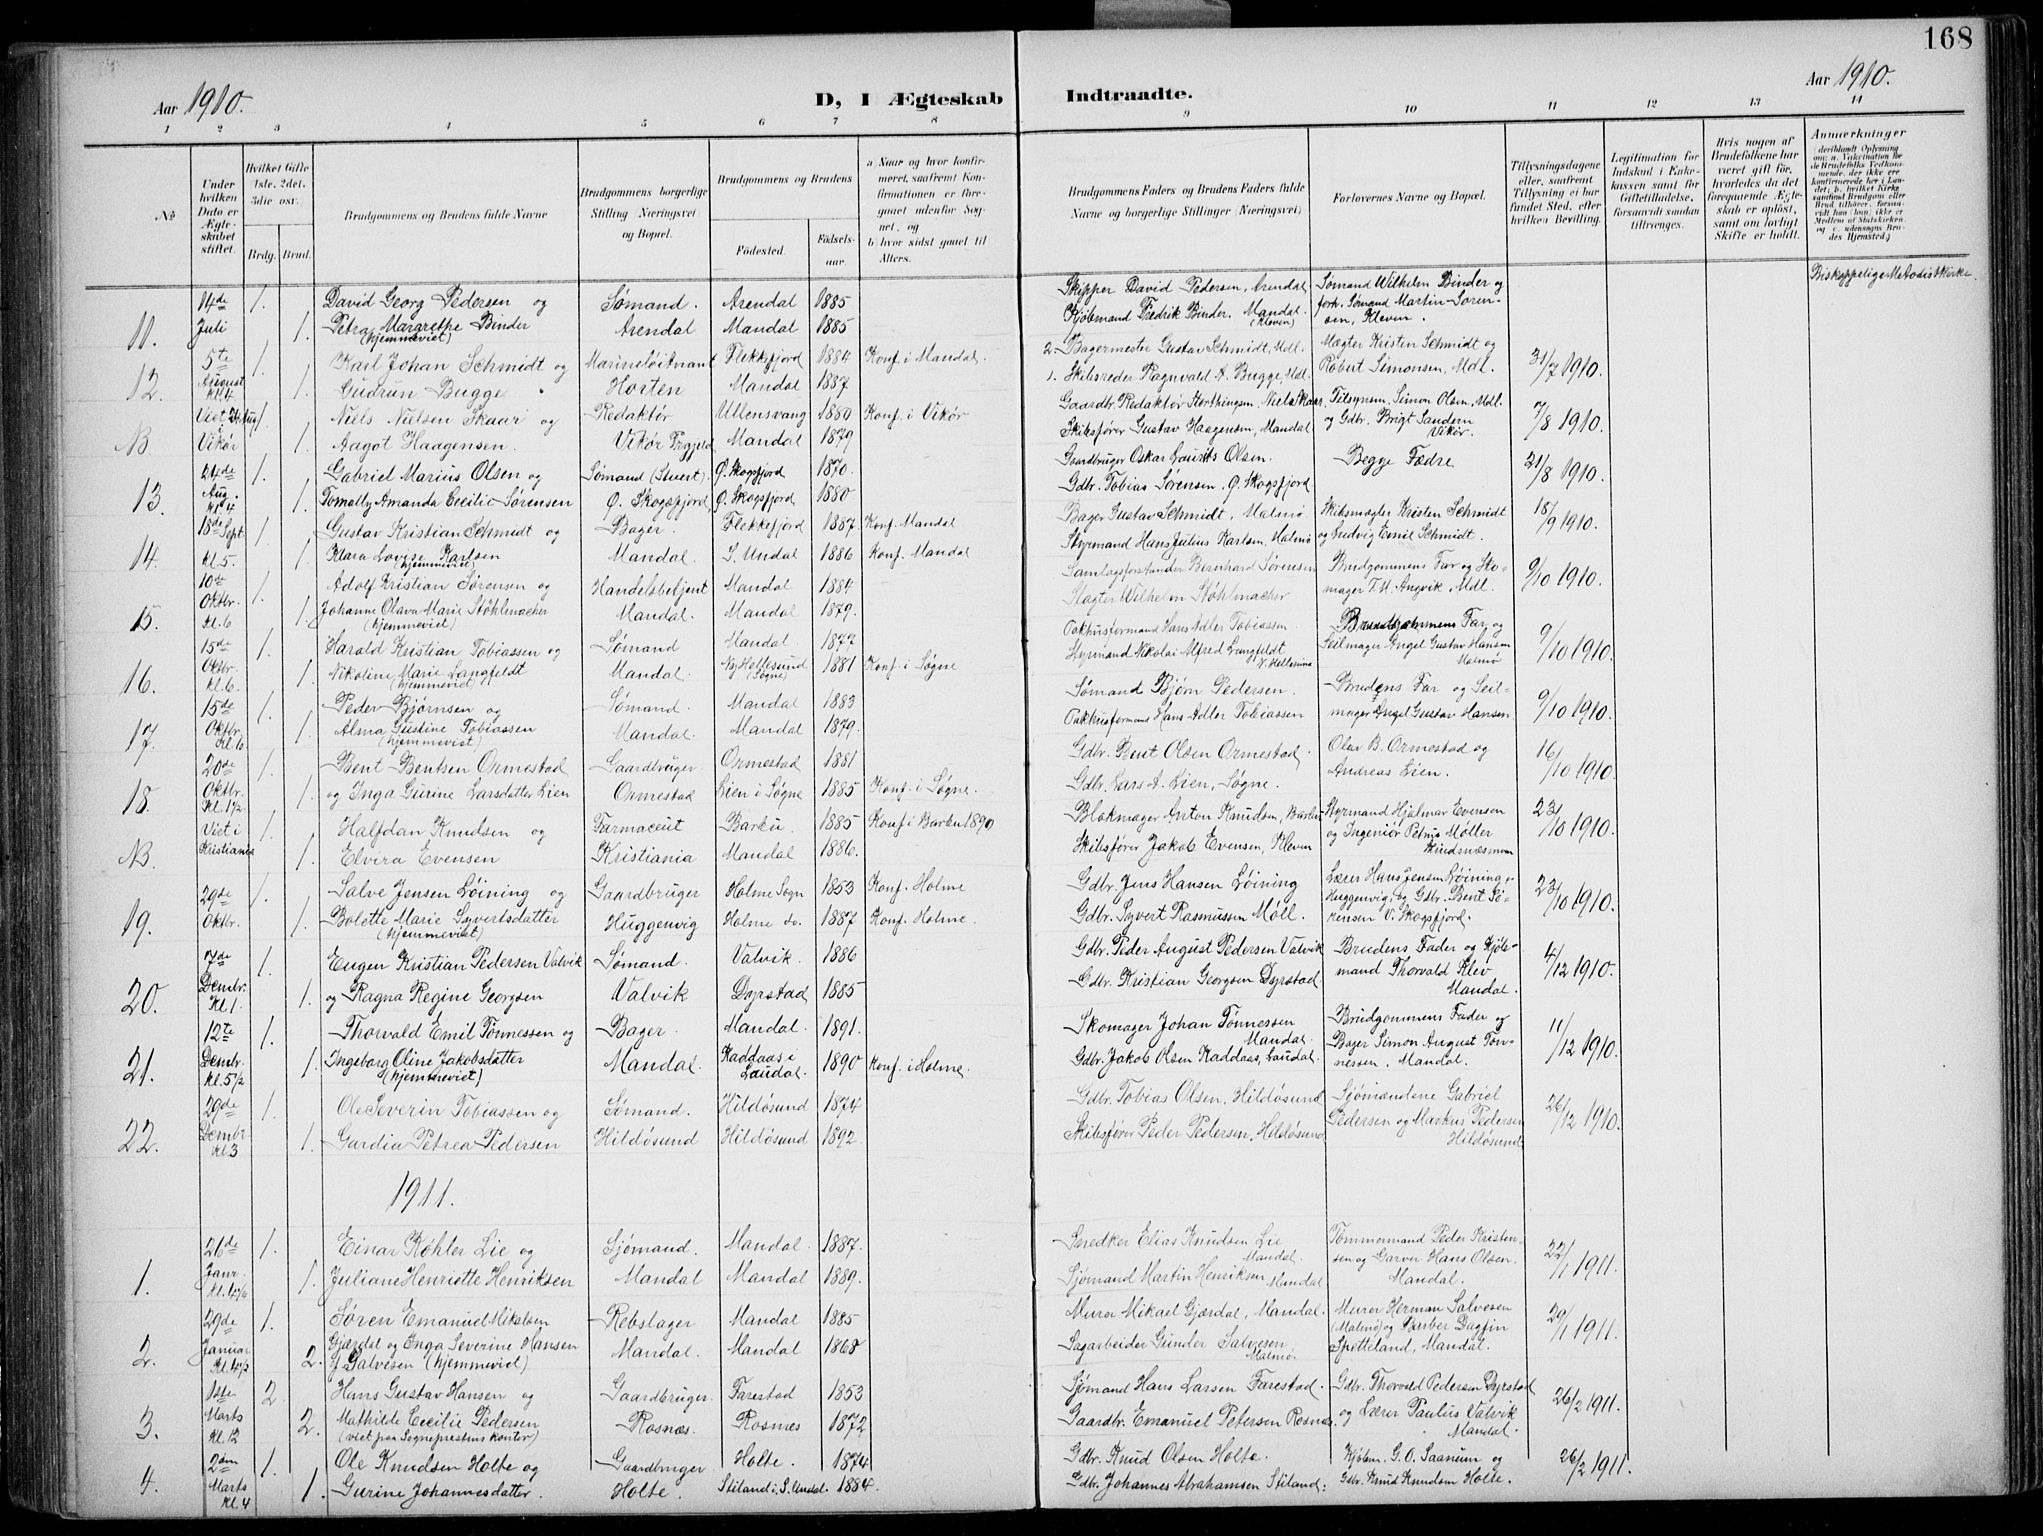 168
Aar 1910.
D, I Ægteskab Indtraadte.
Aar 1910.
1 2 3 4 5 6 7 8 9 10 11 12 13 14
№
Under hvilken Dato er Ægteskabet stiftet.
Hvilket Gifte 1ste, 2det, 3die osv.
Brdg. Brud.
Brudgommens og Brudens fulde Navne
Brudgommens borgerlige Stilling (Næringsvei) og Bopæl.
Brudgommens og Brudens
Fødested. Fødselsaar.
a. Naar og hvor konfirmeret, saafremt Konfirmationen er foregaaet udenfor Sognet, og
b. hvor sidst gaaet til Alters.
Brudgommens Faders og Brudens Faders fulde Navne og borgerlige Stillinger (Næringsvei)
Forlovernes Navne og Bopæl.
Tillysningsdagene eller, saafremt Tillysning ei har fundet Sted, efter hvilken Bevilling.
Legitimation for Indskud i Enkekassen samt for Giftetilladelse, forsaavidt saadan tiltrænges.
Hvis nogen af Brudefolkene har været gift før, hvorledes da det foregaaende Ægteskab er opløst, samt om lovligt Skifte er holdt.
Anmærkninger (deriblandt Oplysning om: a. Vakcination for de Brudefolks Vedkommende, der ikke ere konfirmerede her i Landet; b. hvilket Kirkesamfund Brudgom eller Brud tilhører, forsaavidt han (hun) ikke er Medlem af Statskirken, og c. udensogns Brudes Hjemsted.)
11. 14de Juli 1. 1. David Georg Pedersen og Sømand. Arendal 1885 Skipper David Pedersen, Arendal Sømand Wilhelm Binder og Biskoppelige Metodistkirke.
Petra Margrethe Binder (hjemmeviet) Arendal Mandal 1885 Kjøbmand Fredrik Binder, Mandal. (Kleven) forh. Sømand Martin Sorensen, Kleven.
12. 5te August Kl. 4 1. 1. Karl Johan Schmidt og Marineløitnant Flekkefjord 1884 Konf. i Mandal. 2. Bagermester Gustav Schmidt, Mdl. Mægler Kristen Schmidt og 31/7 1910.
Gudrun Bugge Horten Mandal 1887 1. Skibsreder Ragnvald A. Bugge, Mdl. Robert Simonsen, Mdl.
N Viet i Vikør 1. 1. Niels Nielsen Skaar og Redaktør Ullensvang 1880 Konf. i Vikør Gaardbr. Redaktør Storthingsm. Niels Skaar, Tilsynsm. Simon Olsen, Mdl. 7/8 1910.
Aagot Haagensen. Vikør Prgjeld Mandal 1879 Skibsfører Gustav Haagensen, Mandal og Gdbr. Brigt Sandem Vikør.
13. 24de Aug. Kl. 4 1. 1. Gabriel Marius Olsen og Sømand (Stuert). Ø. Skogsfjord 1870. Gaardbruger Oskar Laurits Olsen. Begge Fædre 21/8 1910.
Amanda Cecilie Sørensen Ø. Skogsfjord Ø. Skogsfjord 1880 Gdbr. Tobias Sørensen, Ø. Skogsfjord
14. 18de Sept. Kl. 5. 1. 1. Gustav Kristian Schmidt og Bager. Flekkefjord 1887 Konf. Mandal Bager Gustav Schmidt, Malmø Skibsmægler Kristen Schmidt 18/9 1910.
Klara Lovise Karlsen (hjemmeviet) Mandal. S. Undal 1886 Konf. Mandal Styrmand Hans Julius Karlsen, Malmø og Ludvig Emil Schmidt.
15. 10de Oktbr. Kl. 6 1. 1. Adolf Kristian Sørensen og Handelsbetjent Mandal 1884 Samlagsforstander Bernhard Sørensen Brudgommens Far og Skomager T. M. Angvik, Mdl. 9/10 1910.
Johanne Olava Marie Støhlmacher (hjemmeviet) Mandal. Mandal 1879. Slagter Wilhelm Støhlmacher
16. 15de Oktbr. Kl. 6. 1. 1. Harald Kristian Tobiassen og Sømand Mandal 1877 Pakhusformand Hans Adler Tobiassen Brudgommens Far og 9/10 1910.
Nikoline Marie Langfeldt (hjemmeviet) Mandal. Ny Hellesund (Søgne) 1881 Konf. i Søgne Styrmand Nikolai Alfred Langfeldt N. Hellesund Seilmager Angel Gustav Hansen Malmø
17. 15de Oktbr. Kl. 6 1. 1. Peder Bjørnsen og Sømand. Mandal 1883 Sømand Bjørn Pedersen. Brudens Far og Seilmager Angel Gustav Hansen 9/10 1910.
Alma Gustine Tobiassen (hjemmeviet) Mandal. Mandal 1879. Pakhusformand Hans Adler Tobiassen
18. 20de Oktbr. Kl. 1 1/2 1. 1. Bent Bentsen Ormestad Gaardbruger. Ormestad 1881 Gdbr. Bent Olsen Ormestad. Olav B. Ormestad og 16/10 1910.
og Inga Gurine Larsdatter Lien Ormestad Lien i Søgne 1885 Konf. i Søgne. Gdbr. Lars A. Lien, Søgne. Andreas Lien.
N Viet i Kristiania 1. 1. Halfdan Knudsen og Farmaceut Barbu. 1885 Konf. i Barbu 1890 Blokmager Anton Knudsen, Barbu Styrmand Hjalmar Evensen 23/10 1910.
Elvira Evensen Kristiania Mandal 1886. Skibsfører Jakob Evensen, Kleven og Ingeniør Petrus Møller
19. 29de Oktbr. 1. 1. Salve Jensen Løining og Gaardbruger Holme Sogn 1853 Konf. Holme Gdbr. Jens Hansen Løining Lærer Hans Jensen Løining, Huggenvig, og Gdbr. Bent Sørensen V. Skogsfjord. 23/10 1910.
Bolette Marie Syvertsdatter (hjemmeviet) Huggenvig Holme do. 1887 Konf. Holme. Gdbr. Syvert Rasmussen Møll.
20. 7de Dembr. Kl. 1. 1. 1. Eugen Kristian Pedersen Valvik Sømand. Valvik. 1886 Gdbr. Peder August Pedersen Valvik Brudens Fader og Kjøbmand Thorvald Klev Mandal. 4/12 1910.
og Ragna Regine Georgsen Valvik Dyrstad 1885 Gdbr. Kristian Georgsen Dyrstad
21. 12te Dembr. Kl. 5 1/2 1. 1. Thorvald Emil Tønnessen og Bager. Mandal 1891. Skomager Johan Tønnessen Mandal. Brudgommens Fader og 11/12 1910.
Ingeborg Oline Jakobsdatter (hjemmeviet) Mandal. Kaddaas i Laudal. 1890 Konf. i Holme. Gdbr. Jakob Olsen Kaddaas, Laudal. Bager Simon August Tønnessen, Mandal.
22. 29de Dembr. Kl. 3 1. 1. Ole Severin Tobiassen og Sømand. Hildøsund 1874 Gdbr. Tobias Olsen, Hildøsund Sjømændene Gabriel 26/12 1910.
Gardia Petrea Pedersen Hildøsund Hildøsund 1892 Skibsfører Peder Pedersen, Hildøsund Pedersen og Markus Pedersen Hildøsund
1911.
1. 26de Janr. 1. 1. Einar Køhler Lie og Sjømand. Mandal. 1887. Snedker Elias Knudsen Lie Mandal. Tømmermand Peder Kristensen og Garver Hans Olsen. Mandal. 22/1 1911.
Juliane Henriette Henriksen Mandal Mandal 1889. Sjømand Martin Henriksen Mandal
2. 29de Januar 1. 2. Søren Emanuel Mikalsen Rebslager Mandal 1885 Murer Mikael Gjærdal, Mandal. Murer Herman Salvesen (Malmø) og Barber Dagfin Spetteland, Mandal. 29/1 1911.
Gjærdal og Inga Severine Hansen f. Salvesen (hjemmeviet) Mandal. Mandal 1868 Sagarbeider Gunder Salvesen Malmø.
3. 1ste Marts Kl. 12 2. 2. Hans Gustav Hansen og Gaardbruger. Farestad 1853 Sjømand Hans Larsen Farestad. Gdbr. Thorvald Pedersen Dyrstad 26/2 1911.
Mathilde Cecilie Pedersen (viet paa Sogneprestens kontor) Rosnæs. Rosnæs 1872 Gaardbr. Emanuel Petersen Rosnæs og Lærer Paulus Valvik Mandal.
4. 2den Marts Kl. 4 1. 1. Ole Knudsen Holte og Gaardbruger Holte. 1874 Gdbr. Knud Olsen Holte. Kjøbm. G. O. Saanum og 26/2 1911.
Gurine Johannesdatter. Holte. Stiland i S. Undal. 1884. Gdbr. Johannes Abrahamsen Stiland. Gdbr. Knud Knudsen Holte.